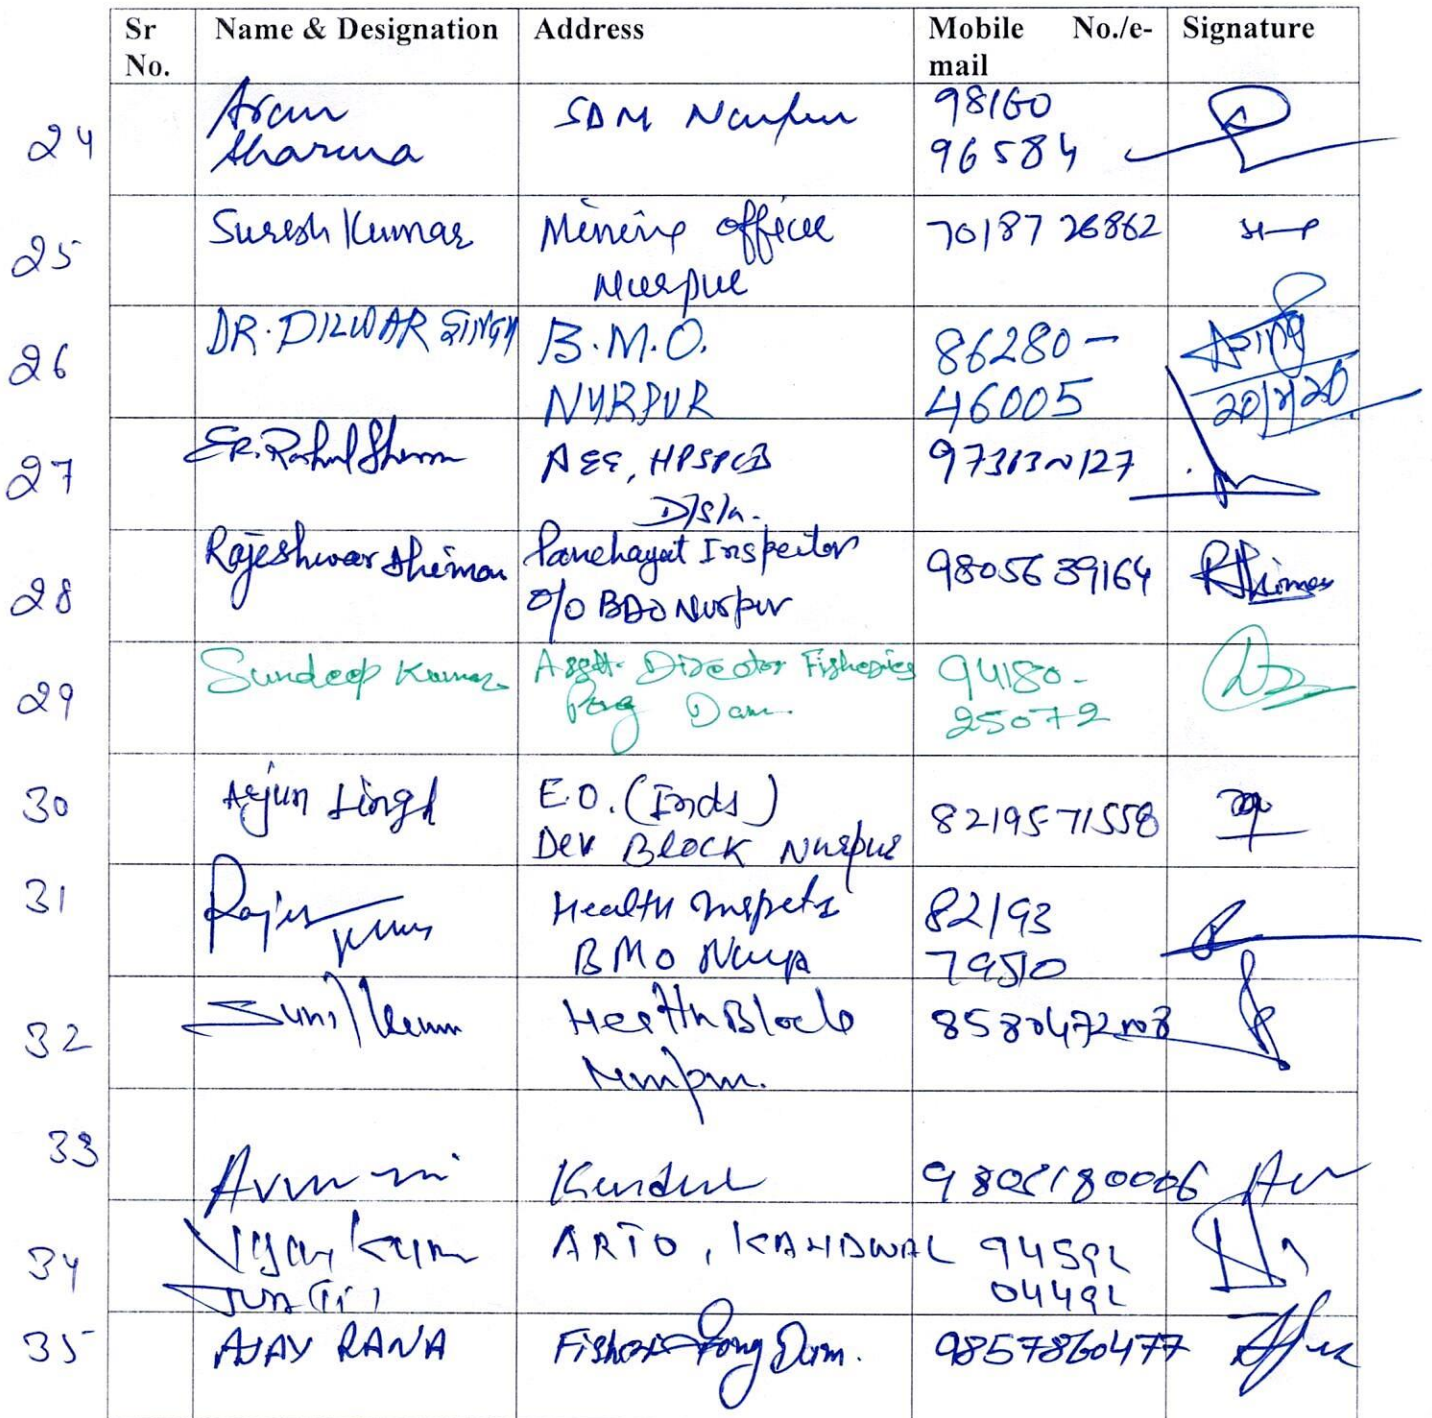 Sr No. Name & Designation Address Mobile No./e-mail Signature
24 Arun Sharma SDM Nurpur 98160 96584
25 Suresh Kumar Mining Officer Nurpur 70187 26862
26 DR. DILWAR SINGH B.M.O. NURPUR 86280- 46005
27 ER. Rahul Sharma AEE, HPSPCB D/S/a.
28 Rajeshwar Dhiman Panchayat Inspector O/O BDO Nurpur 9805639164 RDhiman
29 Sundeep Kumar Asstt. Director Fisheries Pong Dam. 94180- 25072
30 Arjun Singh E.O. (Inds) Dev BLOCK Nurpur 8219571558
31 Health BMO 82193
32 Sunil Kumar Health Block Nurpur.
33
34 Vijay Kumar ARTO, KANDWAL
35 AJAY RANA Pong Dam. 9857860477